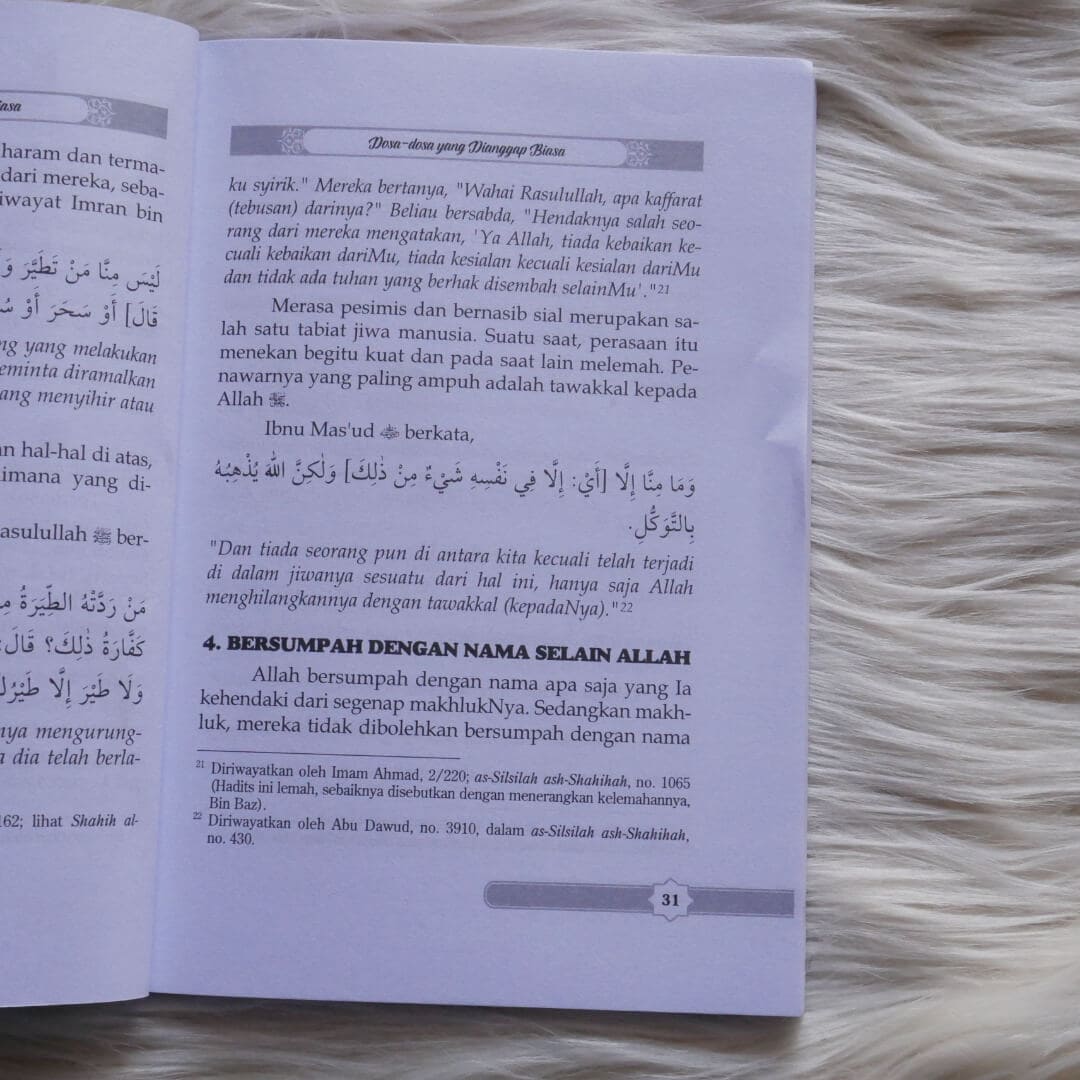 iasa
haram dan terma-
dari mereka, seba-
iwayat Imran bin
لَيْسَ مِنَّا مَنْ تَطَيَّرَ وَ
قَالَ] أَوْ سَحَرَ أَوْ سُ
ng yang melakukan
eminta diramalkan
ang menyihir atau
n hal-hal di atas,
imana yang di-
asulullah ﷺ ber-
مَنْ رَدَّتْهُ الطِّيَرَةُ مِ
كَفَّارَةُ ذٰلِكَ؟ قَالَ:
وَلَا طَيْرَ إِلَّا طَيْرُكَ
nya mengurung-
a dia telah berla-
162; lihat Shahih al-
Dosa-dosa yang Dianggap Biasa
ku syirik." Mereka bertanya, "Wahai Rasulullah, apa kaffarat
(tebusan) darinya?" Beliau bersabda, "Hendaknya salah seo-
rang dari mereka mengatakan, 'Ya Allah, tiada kebaikan ke-
cuali kebaikan dariMu, tiada kesialan kecuali kesialan dariMu
dan tidak ada tuhan yang berhak disembah selainMu'."21
Merasa pesimis dan bernasib sial merupakan sa-
lah satu tabiat jiwa manusia. Suatu saat, perasaan itu
menekan begitu kuat dan pada saat lain melemah. Pe-
nawarnya yang paling ampuh adalah tawakkal kepada
Allah
Ibnu Mas'ud berkata,
وَمَا مِنَّا إِلَّا [أَيْ: إِلَّا فِي نَفْسِهِ شَيْءٌ مِنْ ذٰلِكَ] وَلٰكِنَّ اللهَ يُذْهِبُهُ
بِالتَّوَكُّلِ.
"Dan tiada seorang pun di antara kita kecuali telah terjadi
di dalam jiwanya sesuatu dari hal ini, hanya saja Allah
menghilangkannya dengan tawakkal (kepadaNya)."22
4. BERSUMPAH DENGAN NAMA SELAIN ALLAH
Allah bersumpah dengan nama apa saja yang Ia
kehendaki dari segenap makhlukNya. Sedangkan makh-
luk, mereka tidak dibolehkan bersumpah dengan nama
21 Diriwayatkan oleh Imam Ahmad, 2/220; as-Silsilah ash-Shahihah, no. 1065
(Hadits ini lemah, sebaiknya disebutkan dengan menerangkan kelemahannya,
Bin Baz).
22 Diriwayatkan oleh Abu Dawud, no. 3910, dalam as-Silsilah ash-Shahihah,
no. 430.
31